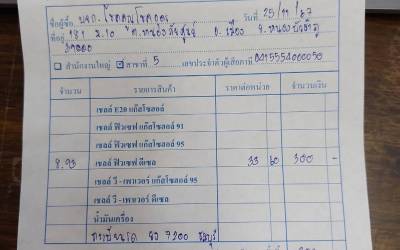 วันที่ 25/11/67
ชื่อผู้ซื้อ บจก. โชคคูณโชคถาวร
ที่อยู่ 181 ม.10 ต.หนองภัยศูนย์ อ.เมือง จ.หนองบัวลำภู
สำนักงานใหญ่ สาขาที่ 5 เลขประจำตัวผู้เสียภาษี
จำนวน รายการสินค้า ราคาต่อหน่วย จำนวนเงิน
เชลล์ E20 แก๊สโซฮอล์
เชลล์ ฟิวเซฟ แก๊สโซฮอล์ 91
เชลล์ ฟิวเซฟ แก๊สโซฮอล์ 95
8.93 เชลล์ ฟิวเซฟ ดีเซล 33 60 300 -
เชลล์ วี - เพาเวอร์ แก๊สโซฮอล์ 95
เชลล์ วี - เพาเวอร์ ดีเซล
น้ำมันเครื่อง
ทะเบียนรถ 7200 ชลบุรี